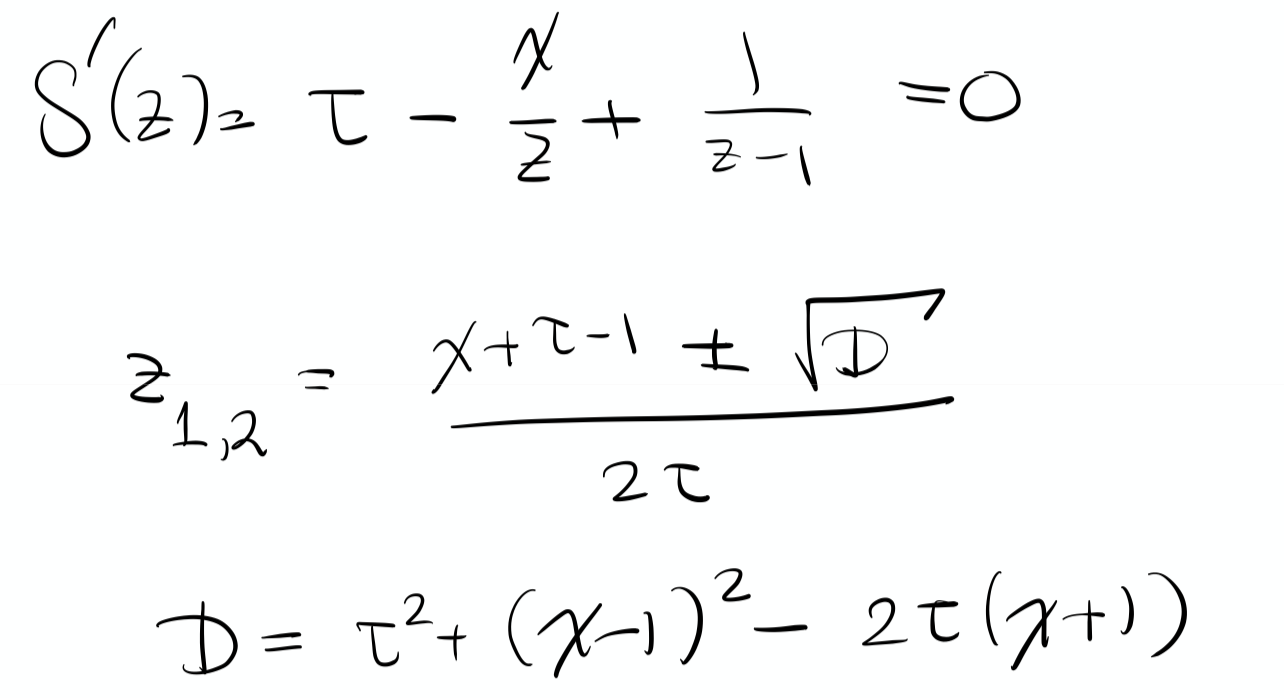 S'(z) = τ - χ/z + 1/(z-1) = 0
z_{1,2} = (χ + τ - 1 ± √D)/(2τ)
D = τ² + (χ-1)² - 2τ(χ+1)